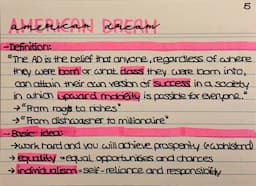 5
AMERICAN DREAM
american dream
→Definition:
"The AD is the belief that anyone, regardless of where
they were born or what class they were born into,
can attain their own version of success in a society
in which upward mobility is possible for everyone."
→ "From rags to riches"
→ "From dishwasher to millionaire"
→Basic idea:
→work hard and you will achieve prosperity
→ equality → equal opportunities and chances
→ individualism → self-reliance and responsibility